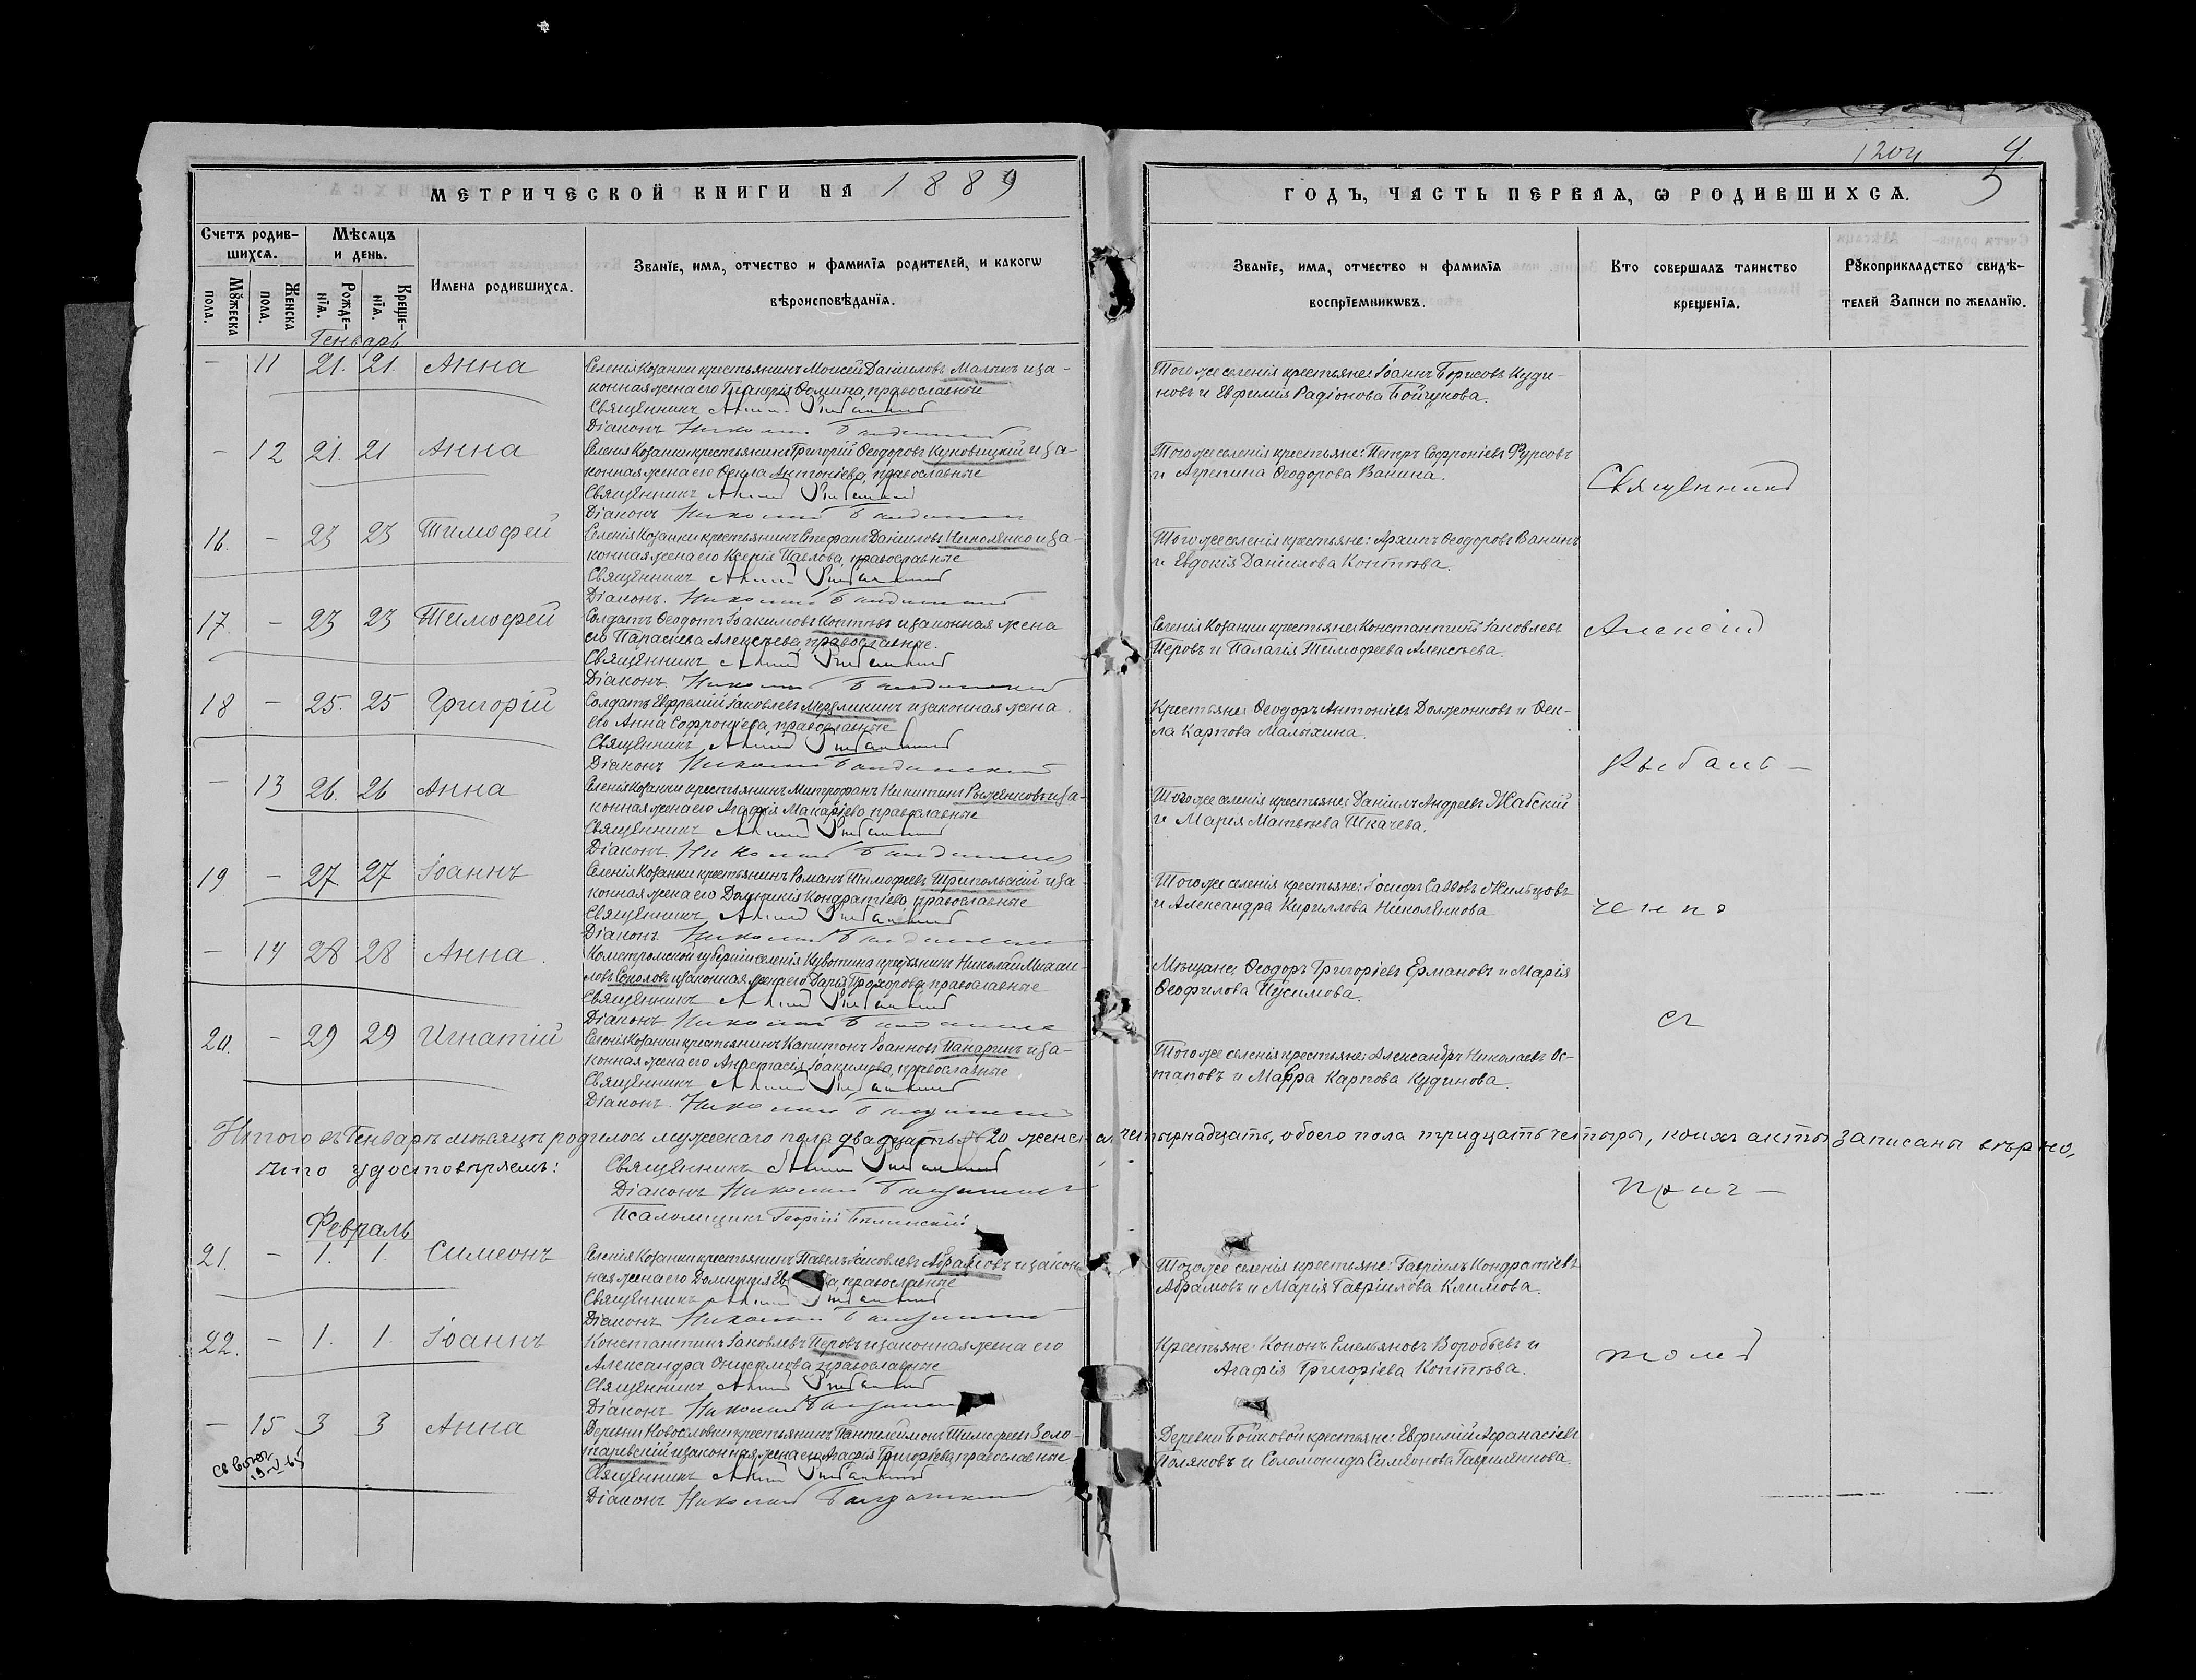 1204 4.
5
МЕТРИЧЕСКОЙ КНИГИ НА 1889 ГОДЪ, ЧАСТЬ ПЕРВАѦ, Ѡ РОДИВШИХСѦ.
Счетъ родив-
шихсѧ.
Мѣсѧцъ
и день.
Имена родившихсѧ.
Званїе, имѧ, отчество и фамилїѧ родителей, и какогѡ
вѣроисповѣданїѧ.
Званїе, имѧ, отчество и фамилїѧ
воспрїемникѡвъ.
Кто совершалъ таинство
крещенїѧ.
Рꙋкоприкладство свидѣ-
телей Записи по желанїю.
Мꙋжеска
пола.
Женска
пола.
Рожде-
нїѧ.
Креще-
нїѧ.
Генварь
— 11 21. 21. Анна
Селенія Козанки крестьянинъ Моисей Даніиловъ Малыхъ и за-
конная жена его Гликерія Ѳомина, православные
Священникъ
Діаконъ Николай
Того же селенія крестьяне: Іоаннъ Борисовъ Куди-
новъ и Евфимія Радіонова Бойчукова.
— 12 21. 21 Анна
Селенія Козанки крестьянинъ Григорій Ѳеодоровъ Куновицкій и за-
конная жена его Ѳекла Антоніева, православные
Священникъ
Діаконъ Николай
Того же селенія крестьяне: Петръ Софроніевъ Фурсовъ
и Агрепина Ѳеодорова Ванина.
Священникъ
16. — 23 23 Тимофей
Селенія Козанки крестьянинъ Стефанъ Даніиловъ Николенко и за-
конная жена его Ксенія Павлова, православные
Священникъ
Діаконъ. Николай
Того же селенія крестьяне: Архипъ Ѳеодоровъ Ванинъ
и Евдокія Даніилова Коптѣва.
17. — 23 23 Тимофей
Солдатъ Ѳеодотъ Іоакимовъ Коптѣвъ и законная жена
его Параскева Алексѣева, православные.
Священникъ
Діаконъ. Николай
Селенія Козанки крестьяне: Константинъ Іаковлевъ
Перовъ и Палагія Тимофеева Алексѣева.
Алексій
18 — 25. 25 Григорій
Солдатъ Евфремій Іаковлевъ и законная жена
его Анна Софроніева, православные
Священникъ
Діаконъ Николай
Крестьяне: Ѳеодоръ Антоніевъ Должонковъ и Ѳек-
ла Карпова Малыхина.
Рыбаль-
— 13 26. 26 Анна
Селенія Козанки крестьянинъ Митрофанъ Никитинъ Рыженковъ и за-
конная жена его Агафія Макаріева, православные
Священникъ
Діаконъ. Николай
Того же селенія крестьяне: Даніилъ Андреевъ Жабскій
и Марія Матвѣева Ткачева.
19 — 27 27 Іоаннъ
Селенія Козанки крестьянинъ Романъ Тимофеевъ Тригольскій и за-
конная жена его Домникія Кондратіева, православные
Священникъ
Діаконъ Николай
Того же селенія крестьяне: Іосифъ Саввовъ Жильцовъ
и Александра Кириллова Николенкова
ченко
— 14 28 28 Анна.
Костромской губерніи селенія крестьянинъ Николай Михаи-
ловъ Соколовъ и законная жена его Дарія Прохорова, православные
Священникъ
Діаконъ Николай
Мѣщане: Ѳеодоръ Григоріевъ Ермановъ и Марія
Ѳеофилова
съ
20. — 29 29 Игнатій
Селенія Козанки крестьянинъ Капитонъ Іоанновъ Панаринъ и за-
конная жена его Анастасія Іоакимова, православные.
Священникъ
Діаконъ. Николай
Того же селенія крестьяне: Александръ Николаевъ Ос-
таповъ и Мавра Карпова Кудинова.
Итого въ Генварѣ мѣсяцѣ родилось мужескаго пола двадцать 20 женска четырнадцать, обоего пола тридцать четыре, коихъ акты записаны вѣрно,
что удостовѣряемъ:
Священникъ
Діаконъ Николай
Псаломщикъ Георгій
прич-
Февраль
21. — 1. 1. Симеонъ
Селенія Козанки крестьянинъ Павелъ Іаковлевъ Абрамовъ и закон-
ная жена его Домникія православные
Священникъ
Діаконъ Николай
Того же селенія крестьяне: Гавріилъ Кондратіевъ
Абрамовъ и Марія Гавріилова Климова.
22. — 1. 1. Іоаннъ
Константинъ Іаковлевъ Перовъ и законная жена его
Александра православные
Священникъ
Діаконъ. Николай
Крестьяне: Кононъ Емельяновъ Воробьевъ и
Агафія Григоріева Коптѣва.
томъ
— 15 3 3 Анна
Деревни крестьянинъ Пантелеймонъ Тимофеевъ Золо-
таревскій и законная жена его Агафія Григоріева, православные
Священникъ
Діаконъ Николай
Деревни Бойковой крестьяне: Евфимій Афанасіевъ
Поляковъ и Соломонида Симеонова Гавриленкова.